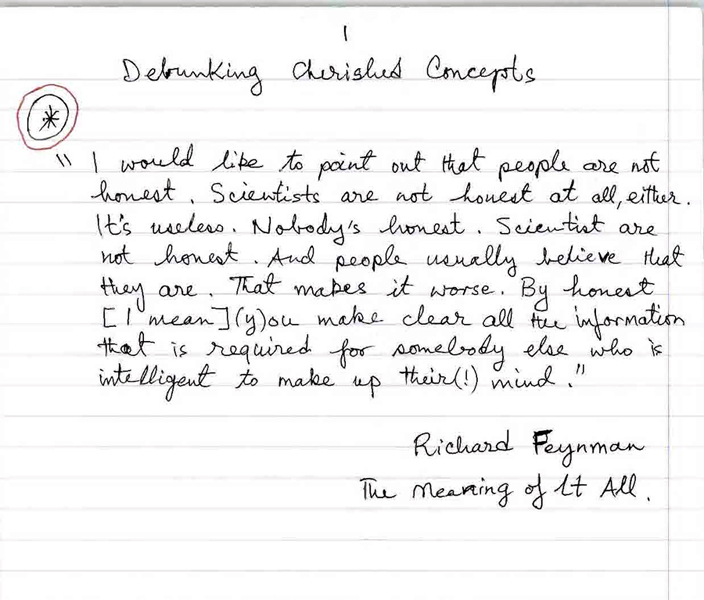 1
Debunking Cherished Concepts
*
"I would like to point out that people are not
honest. Scientists are not honest at all, either.
It's useless. Nobody's honest. Scientist are
not honest. And people usually believe that
they are. That makes it worse. By honest
[I mean](y)ou make clear all the information
that is required for somebody else who is
intelligent to make up their(!) mind."
Richard Feynman
The Meaning of It All.